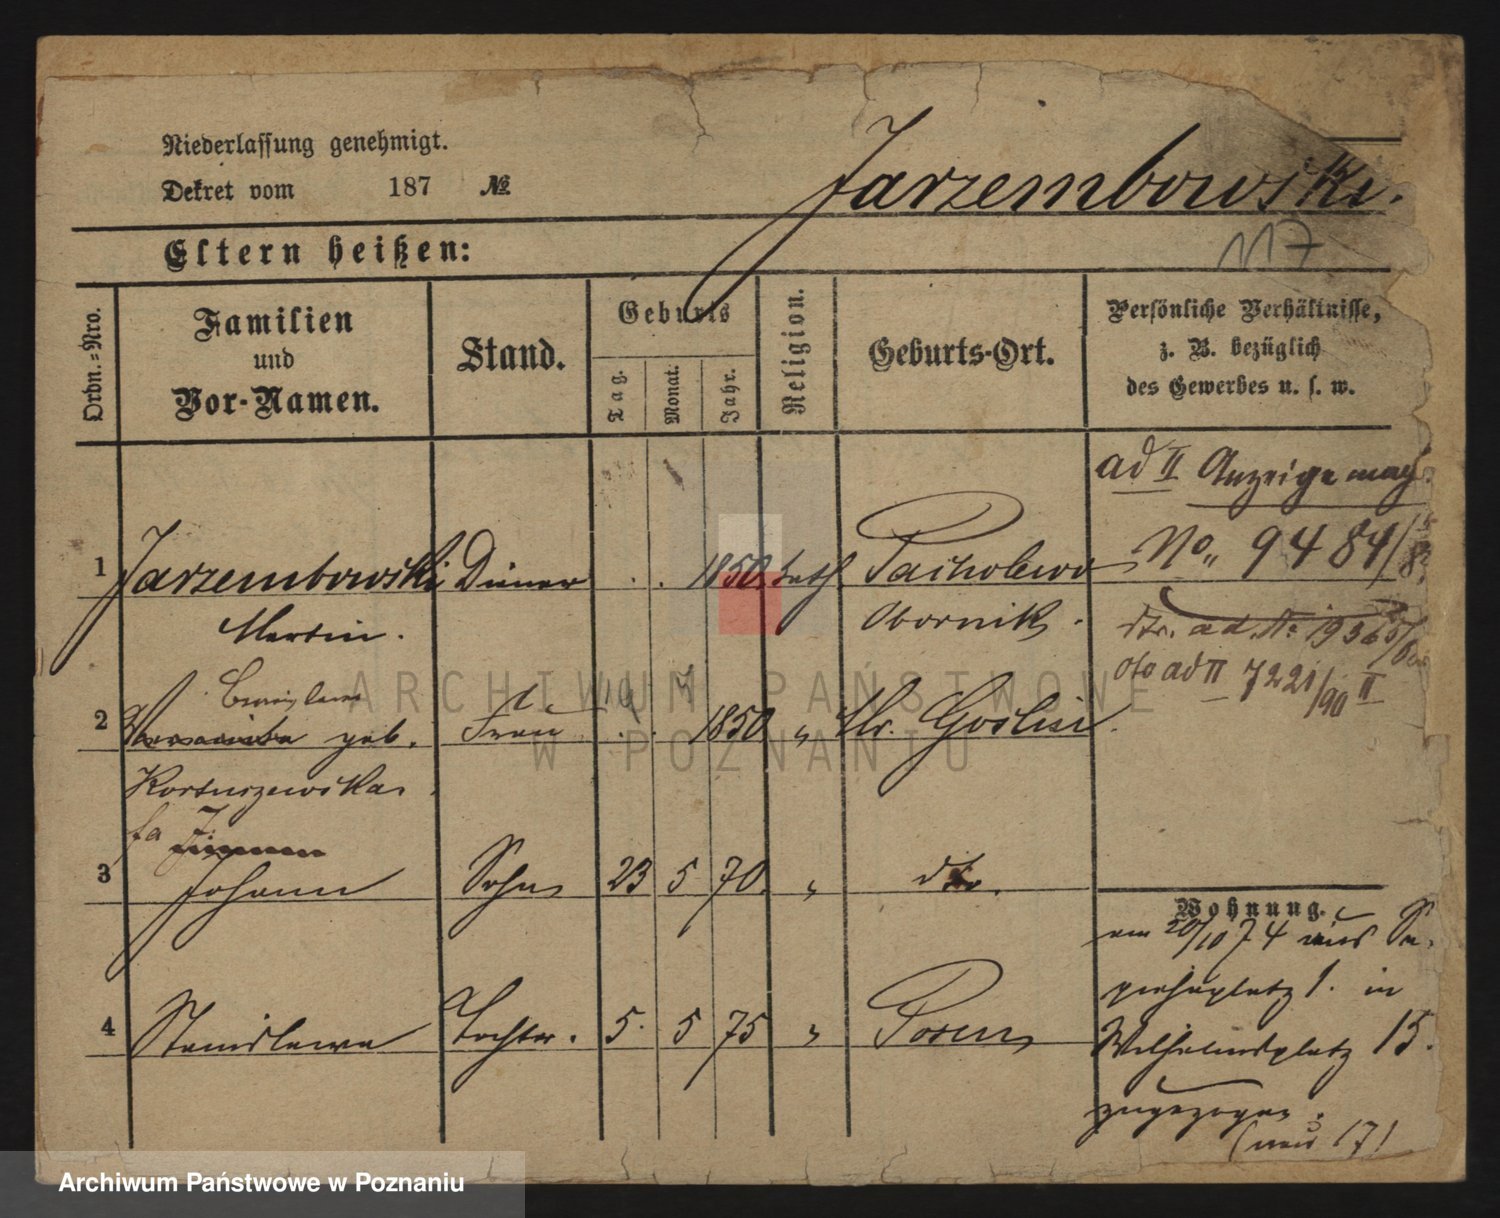 Niederlassung genehmigt.
Dekret vom 187 №
Jarzembowski.
117
Eltern heißen:
Ordn.-Nro.
Familien
und
Vor-Namen.
Stand.
Geburts
Tag.
Monat.
Jahr.
Religion.
Geburts-Ort.
Persönliche Verhältnisse,
z. B. bezüglich
des Gewerbes u. s. w.
ad II Anzeige
No. 9484/
1 Jarzembowski Diener 1850 kath
Obornik.
Martin.
ad № 1936
ad II 7221/90 II
2 geb. Frau 19 7 1850 " Goslin.
ARCHIWUM PAŃSTWOWE
W POZNANIU
3 Johann Sohn 23 5 70 " dto.
Wohnung.
am 20/10 74 aus Sa-
piehaplatz 1. in
4 Stanislawa Tochter. 5. 5 75 " Posen
Wilhelmsplatz 15.
zugezogen.
(neu 17)
Archiwum Państwowe w Poznaniu